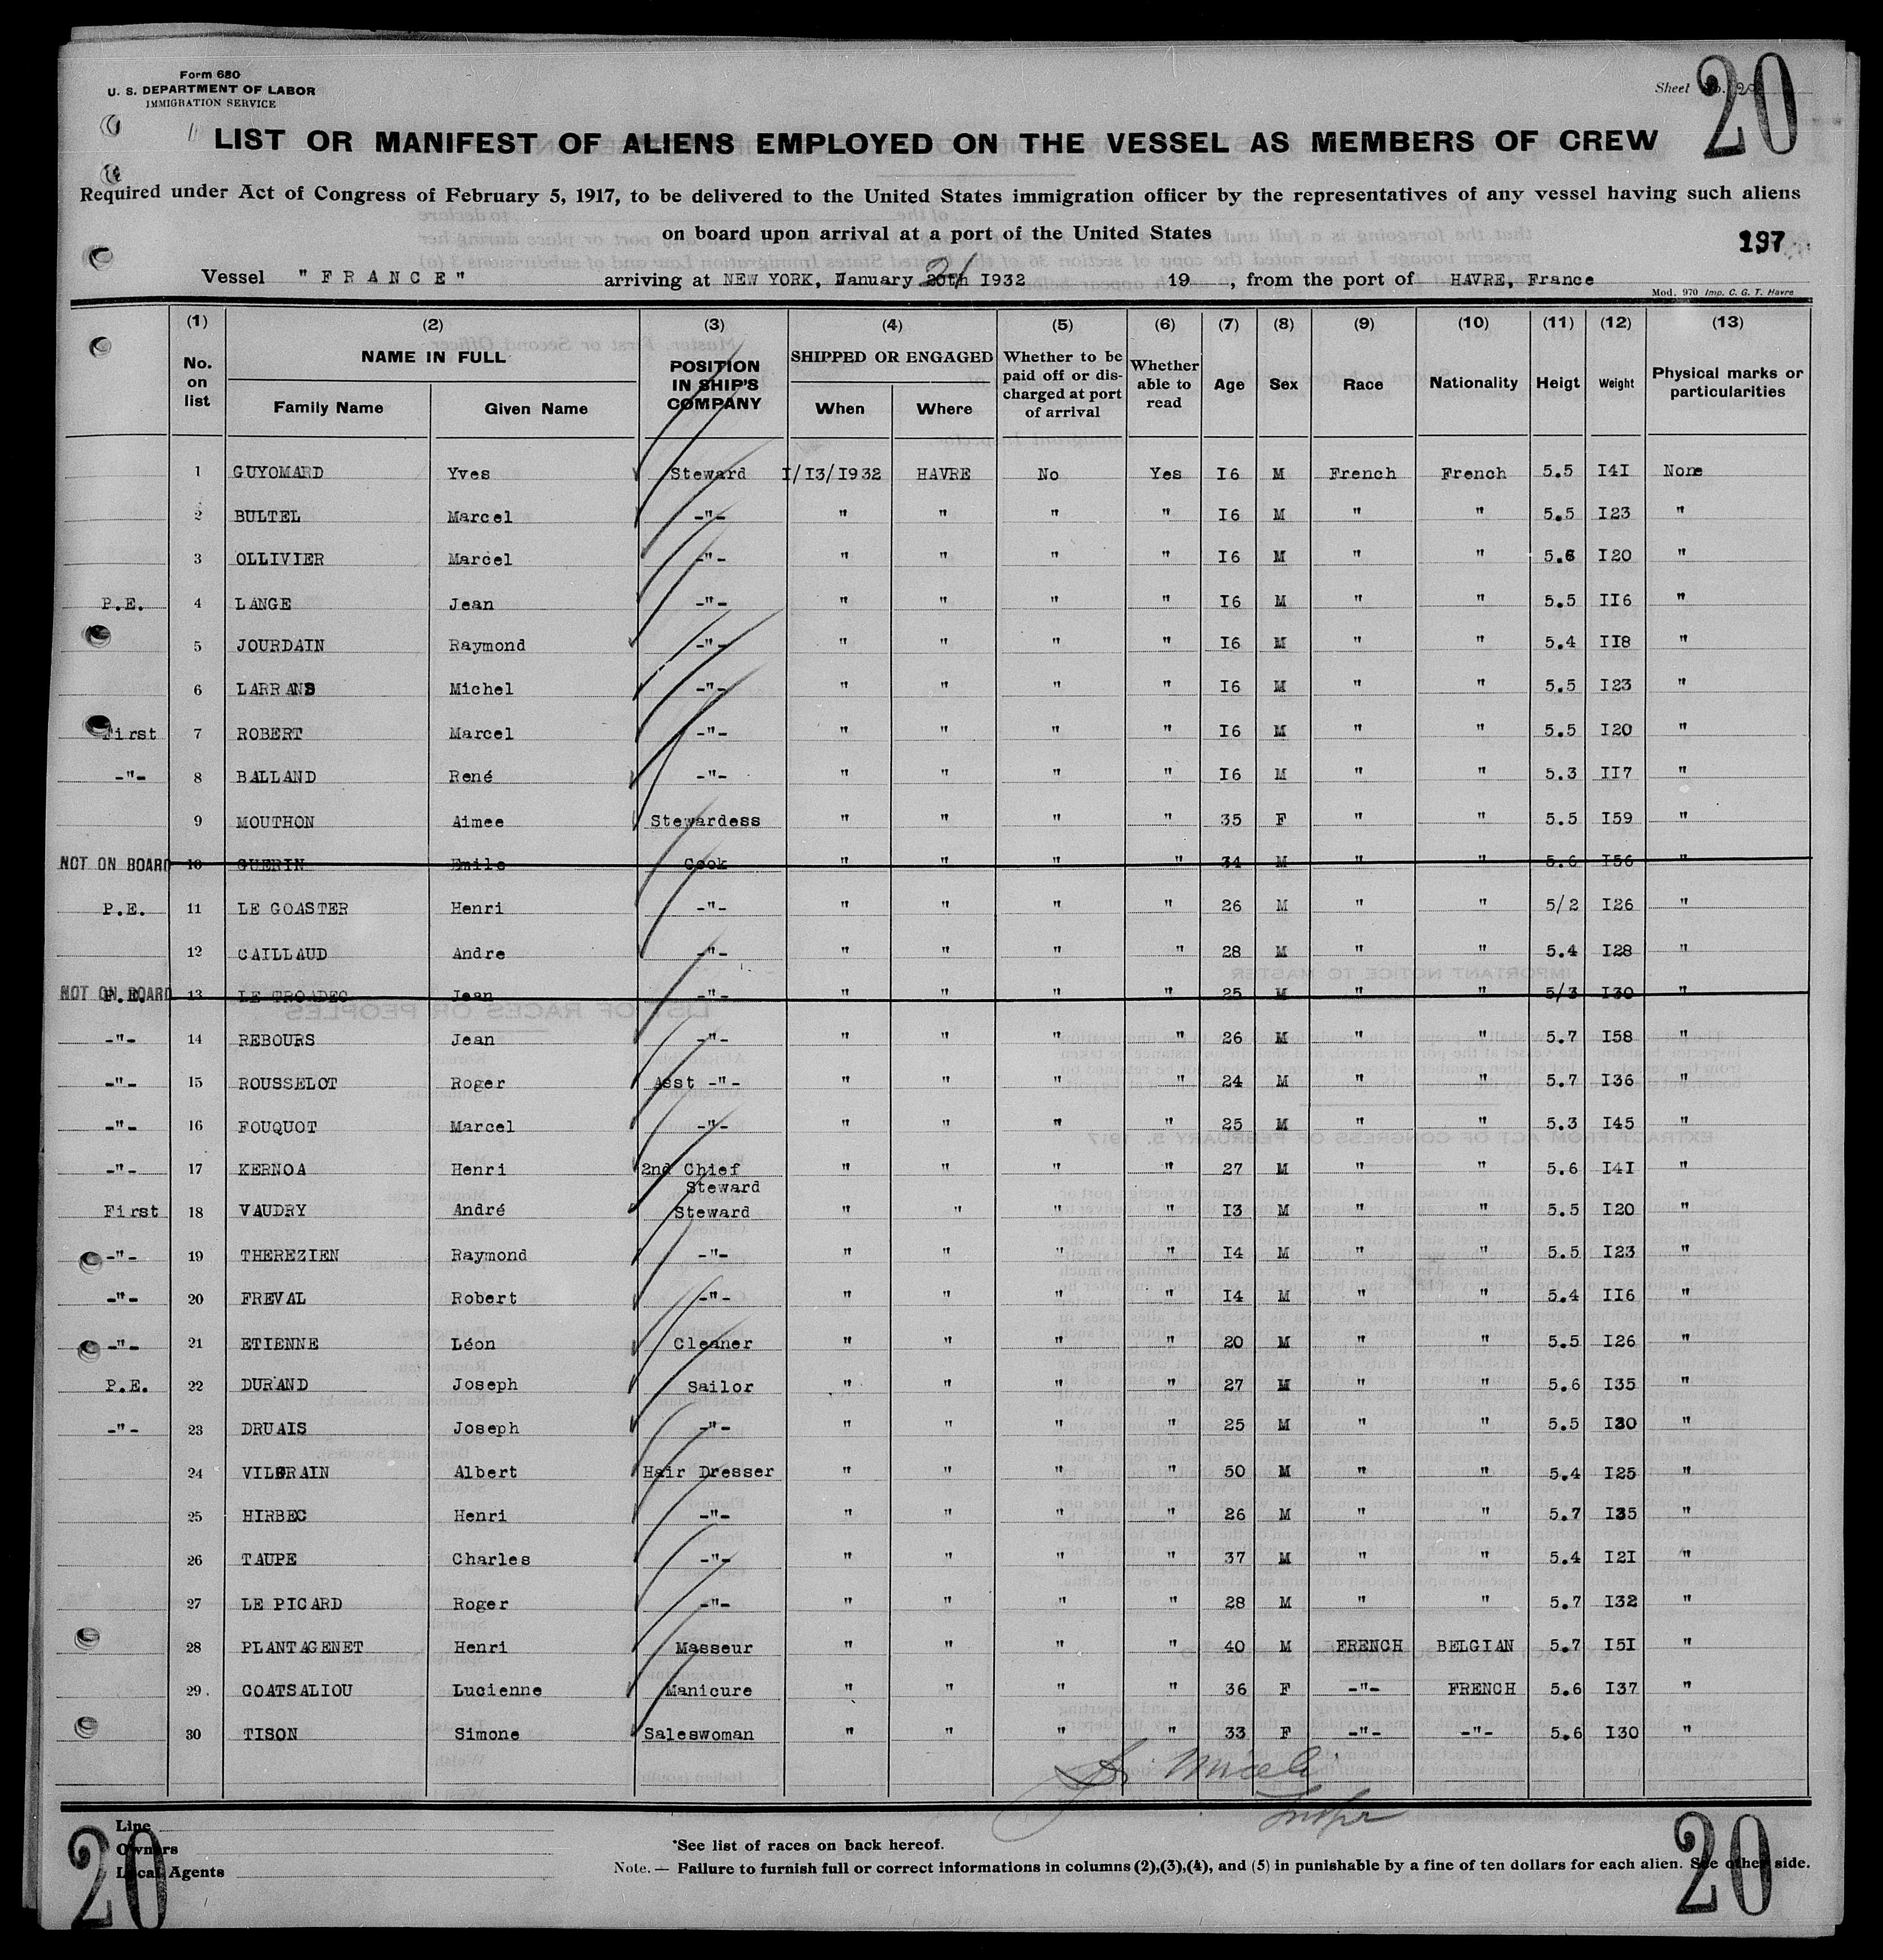 Form 680
U. S. DEPARTMENT OF LABOR
IMMIGRATION SERVICE
Sheet No. 20
20
LIST OR MANIFEST OF ALIENS EMPLOYED ON THE VESSEL AS MEMBERS OF CREW
Required under Act of Congress of February 5, 1917, to be delivered to the United States immigration officer by the representatives of any vessel having such aliens
on board upon arrival at a port of the United States
197
Vessel "FRANCE" arriving at NEW YORK, January 20th 21 I932 19 , from the port of HAVRE, France
Mod. 970 Imp. C. G. T. Havre
(1) (2) (3) (4) (5) (6) (7) (8) (9) (10) (11) (12) (13)
No. on list NAME IN FULL POSITION IN SHIP'S COMPANY SHIPPED OR ENGAGED Whether to be paid off or discharged at port of arrival Whether able to read Age Sex Race Nationality Heigt Weight Physical marks or particularities
Family Name Given Name When Where
1 GUYOMARD Yves Steward I/I3/I932 HAVRE No Yes I6 M French French 5.5 I4I None
2 BULTEL Marcel -"- " " " " I6 M " " 5.5 I23 "
3 OLLIVIER Marcel -"- " " " " I6 M " " 5.6 I20 "
P.E. 4 LANGE Jean -"- " " " " I6 M " " 5.5 II6 "
5 JOURDAIN Raymond -"- " " " " I6 M " " 5.4 II8 "
6 Michel -"- " " " " I6 M " " 5.5 I23 "
First 7 ROBERT Marcel -"- " " " " I6 M " " 5.5 I20 "
-"- 8 BALLAND René -"- " " " " I6 M " " 5.3 II7 "
9 MOUTHON Aimee Stewardess " " " " 35 F " " 5.5 I59 "
NOT ON BOARD 10 GUERIN Emile Cook " " " " 34 M " " 5.6 I56 "
P.E. 11 LE GOASTER Henri -"- " " " " 26 M " " 5/2 I26 "
12 CAILLAUD Andre -"- " " " " 28 M " " 5.4 I28 "
NOT ON BOARD P.E. 13 LE TROADEC Jean -"- " " " " 25 M " " 5/3 I30 "
-"- 14 REBOURS Jean -"- " " " " 26 M " " 5.7 I58 "
-"- 15 ROUSSELOT Roger Asst -"- " " " " 24 M " " 5.7 I36 "
-"- 16 FOUQUOT Marcel -"- " " " " 25 M " " 5.3 I45 "
-"- 17 KERNOA Henri 2nd Chief Steward " " " " 27 M " " 5.6 I4I "
First 18 VAUDRY André Steward " " " " I3 M " " 5.5 I20 "
-"- 19 THEREZIEN Raymond -"- " " " " I4 M " " 5.5 I23 "
-"- 20 FREVAL Robert -"- " " " " I4 M " " 5.4 II6 "
-"- 21 ETIENNE Léon Cleaner " " " " 20 M " " 5.5 I26 "
P.E. 22 DURAND Joseph Sailor " " " " 27 M " " 5.6 I35 "
-"- 23 DRUAIS Joseph -"- " " " " 25 M " " 5.5 I30 "
24 Albert Hair Dresser " " " " 50 M " " 5.4 I25 "
25 HIRBEC Henri -"- " " " " 26 M " " 5.7 I35 "
26 TAUPE Charles -"- " " " " 37 M " " 5.4 I2I "
27 LE PICARD Roger -"- " " " " 28 M " " 5.7 I32 "
28 PLANTAGENET Henri Masseur " " " " 40 M FRENCH BELGIAN 5.7 I5I "
29 COATSALIOU Lucienne Manicure " " " " 36 F -"- FRENCH 5.6 I37 "
30 TISON Simone Saleswoman " " " " 33 F -"- -"- 5.6 I30 "
Line
Owners
Local Agents
*See list of races on back hereof.
Note. — Failure to furnish full or correct informations in columns (2),(3),(4), and (5) in punishable by a fine of ten dollars for each alien. See other side.
20
20